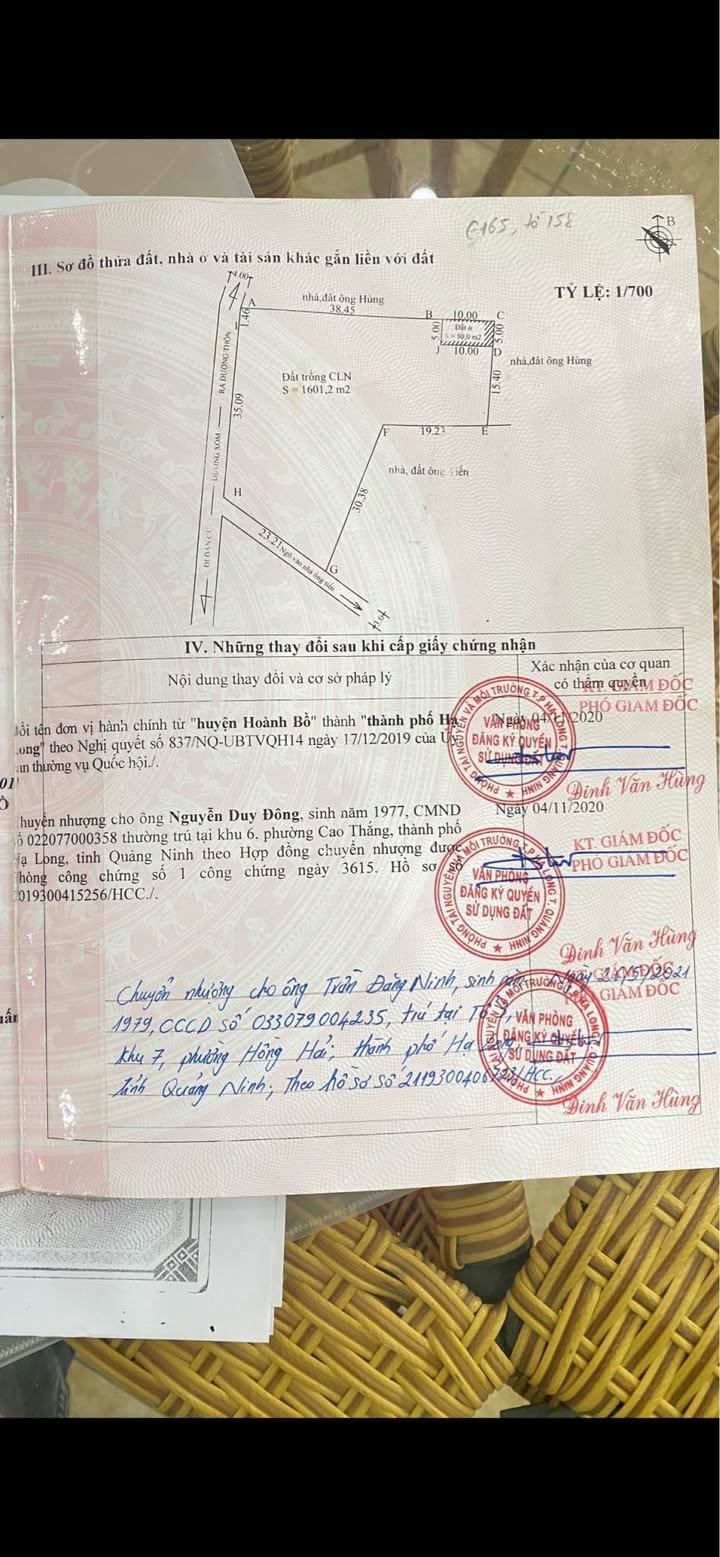 C165, tờ 158
B
III. Sơ đồ thửa đất, nhà ở và tài sản khác gắn liền với đất
TỶ LỆ: 1/700
4.00
A
nhà,đất ông Hùng
38.45
B
10.00
C
1.46
I
5.00
Đất ở
S = 50,0 m2
5.00
J
10.00
D
nhà,đất ông Hùng
RA ĐƯỜNG THÔN
Đất trồng CLN
S = 1601,2 m2
15.40
35.09
F
19.23
E
ĐƯỜNG XÓM
nhà, đất ông Tiến
H
30.38
ĐI DÂN CƯ
23.21
Ngõ vào nhà ông tiến
G
IV. Những thay đổi sau khi cấp giấy chứng nhận
Nội dung thay đổi và cơ sở pháp lý
Xác nhận của cơ quan
có thẩm quyền
KT. GIÁM ĐỐC
PHÓ GIÁM ĐỐC
Ngày 04/11/2020
đổi tên đơn vị hành chính từ "huyện Hoành Bồ" thành "thành phố Hạ
Long" theo Nghị quyết số 837/NQ-UBTVQH14 ngày 17/12/2019 của Ủy
an thường vụ Quốc hội./.
PHÒNG TÀI NGUYÊN VÀ MÔI TRƯỜNG T.P HẠ LONG T. QUẢNG NINH
VĂN PHÒNG
ĐĂNG KÝ QUYỀN
SỬ DỤNG ĐẤT
Đinh Văn Hùng
Chuyển nhượng cho ông Nguyễn Duy Đông, sinh năm 1977, CMND
số 022077000358 thường trú tại khu 6, phường Cao Thắng, thành phố
Hạ Long, tỉnh Quảng Ninh theo Hợp đồng chuyển nhượng được
hòng công chứng số 1 công chứng ngày 3615. Hồ sơ số
019300415256/HCC./.
Ngày 04/11/2020
KT. GIÁM ĐỐC
PHÓ GIÁM ĐỐC
PHÒNG TÀI NGUYÊN VÀ MÔI TRƯỜNG T.P HẠ LONG T. QUẢNG NINH
VĂN PHÒNG
ĐĂNG KÝ QUYỀN
SỬ DỤNG ĐẤT
Đinh Văn Hùng
Chuyển nhượng cho ông Trần Đăng Ninh, sinh năm
1979, CCCD số 033079004235, trú tại Tổ
Khu 7, phường Hồng Hải, thành phố Hạ Long,
tỉnh Quảng Ninh; Theo hồ sơ số
/HCC.
Ngày
GIÁM ĐỐC
GIÁM ĐỐC
PHÒNG TÀI NGUYÊN VÀ MÔI TRƯỜNG T.P HẠ LONG T. QUẢNG NINH
VĂN PHÒNG
ĐĂNG KÝ QUYỀN
SỬ DỤNG ĐẤT
Đinh Văn Hùng